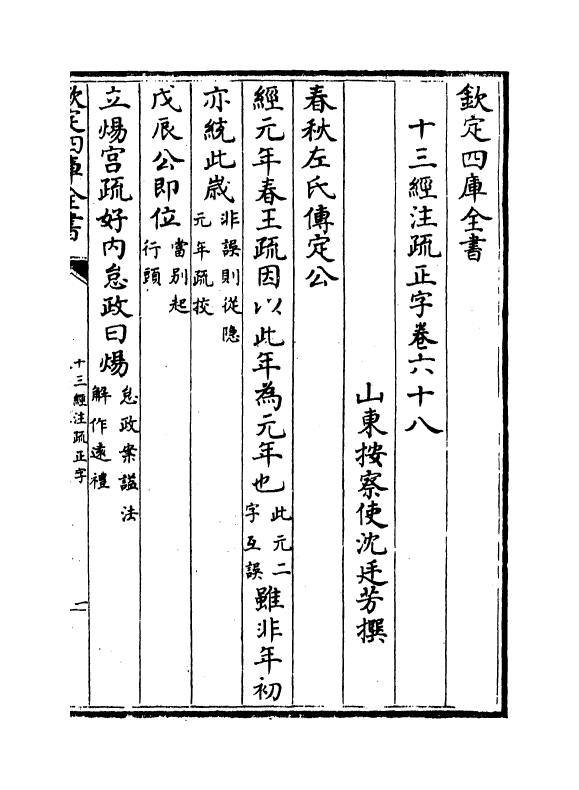 欽定四庫全書
十三經注疏正字卷六十八
山東按察使沈廷芳撰
春秋左氏傳定公
經元年春王疏因以此年為元年也此元二字互誤雖非年初
亦統此歲非誤則從隐元年疏挍
戊辰公即位當別起行頭
立煬宫疏好内怠政曰煬怠政案謚法解作逺禮
欽定四庫全書
十三經注疏正字
一